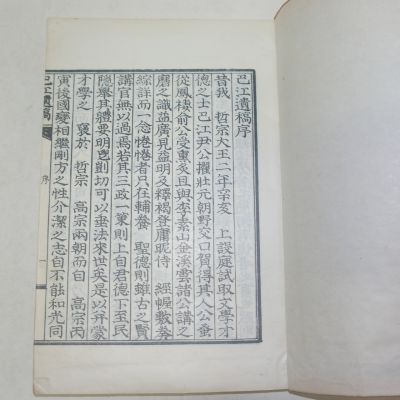 巴江遺稿序
昔我 哲宗大王二年辛亥 上設庭試取文學才
德之士巴江尹公擢壯元朝野交口賀得其人公蚤
從鳳棲俞公受業又且與李素山金溪雲諸公講之
磨之識益廣見益明及釋褐登庸昵侍 經幄敷奏
綜詳而一念惓惓者只在輔養 聖德則雖古之賢
講官無以過焉若其三政一策則上自君德下至民
隱擧其體要明鬯剴切可以垂法來世矣是以幷蒙
才學之 褒於 哲宗 高宗兩朝而自 高宗丙
寅後國變相繼剛方之性介潔之志自不能和光同
巴江遺稿
序
一